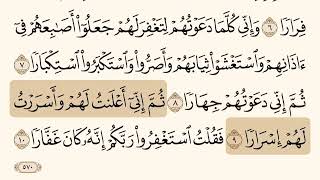 فِرَارًا ٦ وَإِنِّي كُلَّمَا دَعَوْتُهُمْ لِتَغْفِرَ لَهُمْ جَعَلُوٓا۟ أَصَٰبِعَهُمْ فِىٓ
ءَاذَانِهِمْ وَٱسْتَغْشَوْا۟ ثِيَابَهُمْ وَأَصَرُّوا۟ وَٱسْتَكْبَرُوا۟ ٱسْتِكْبَارًا ٧
ثُمَّ إِنِّى دَعَوْتُهُمْ جِهَارًا ٨ ثُمَّ إِنِّىٓ أَعْلَنتُ لَهُمْ وَأَسْرَرْتُ
لَهُمْ إِسْرَارًا ٩ فَقُلْتُ ٱسْتَغْفِرُوا۟ رَبَّكُمْ إِنَّهُۥ كَانَ غَفَّارًا ١٠
٥٧٠